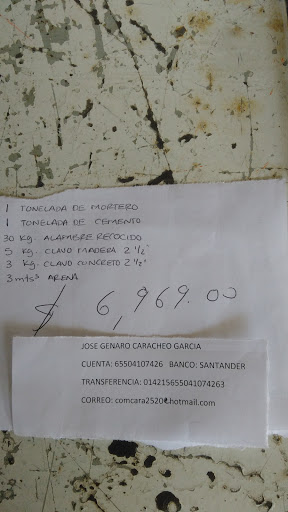 1 TONELADA DE MORTERO
1 TONELADA DE CEMENTO
30 Kg. ALAMBRE RECOCIDO
5 Kg. CLAVO MADERA 2 1/2"
3 Kg. CLAVO CONCRETO 2 1/2"
3 mts³ ARENA
$ 6,969.00
JOSE GENARO CARACHEO GARCIA
CUENTA: 65504107426 BANCO: SANTANDER
TRANSFERENCIA: 014215655041074263
CORREO: comcara2520@hotmail.com